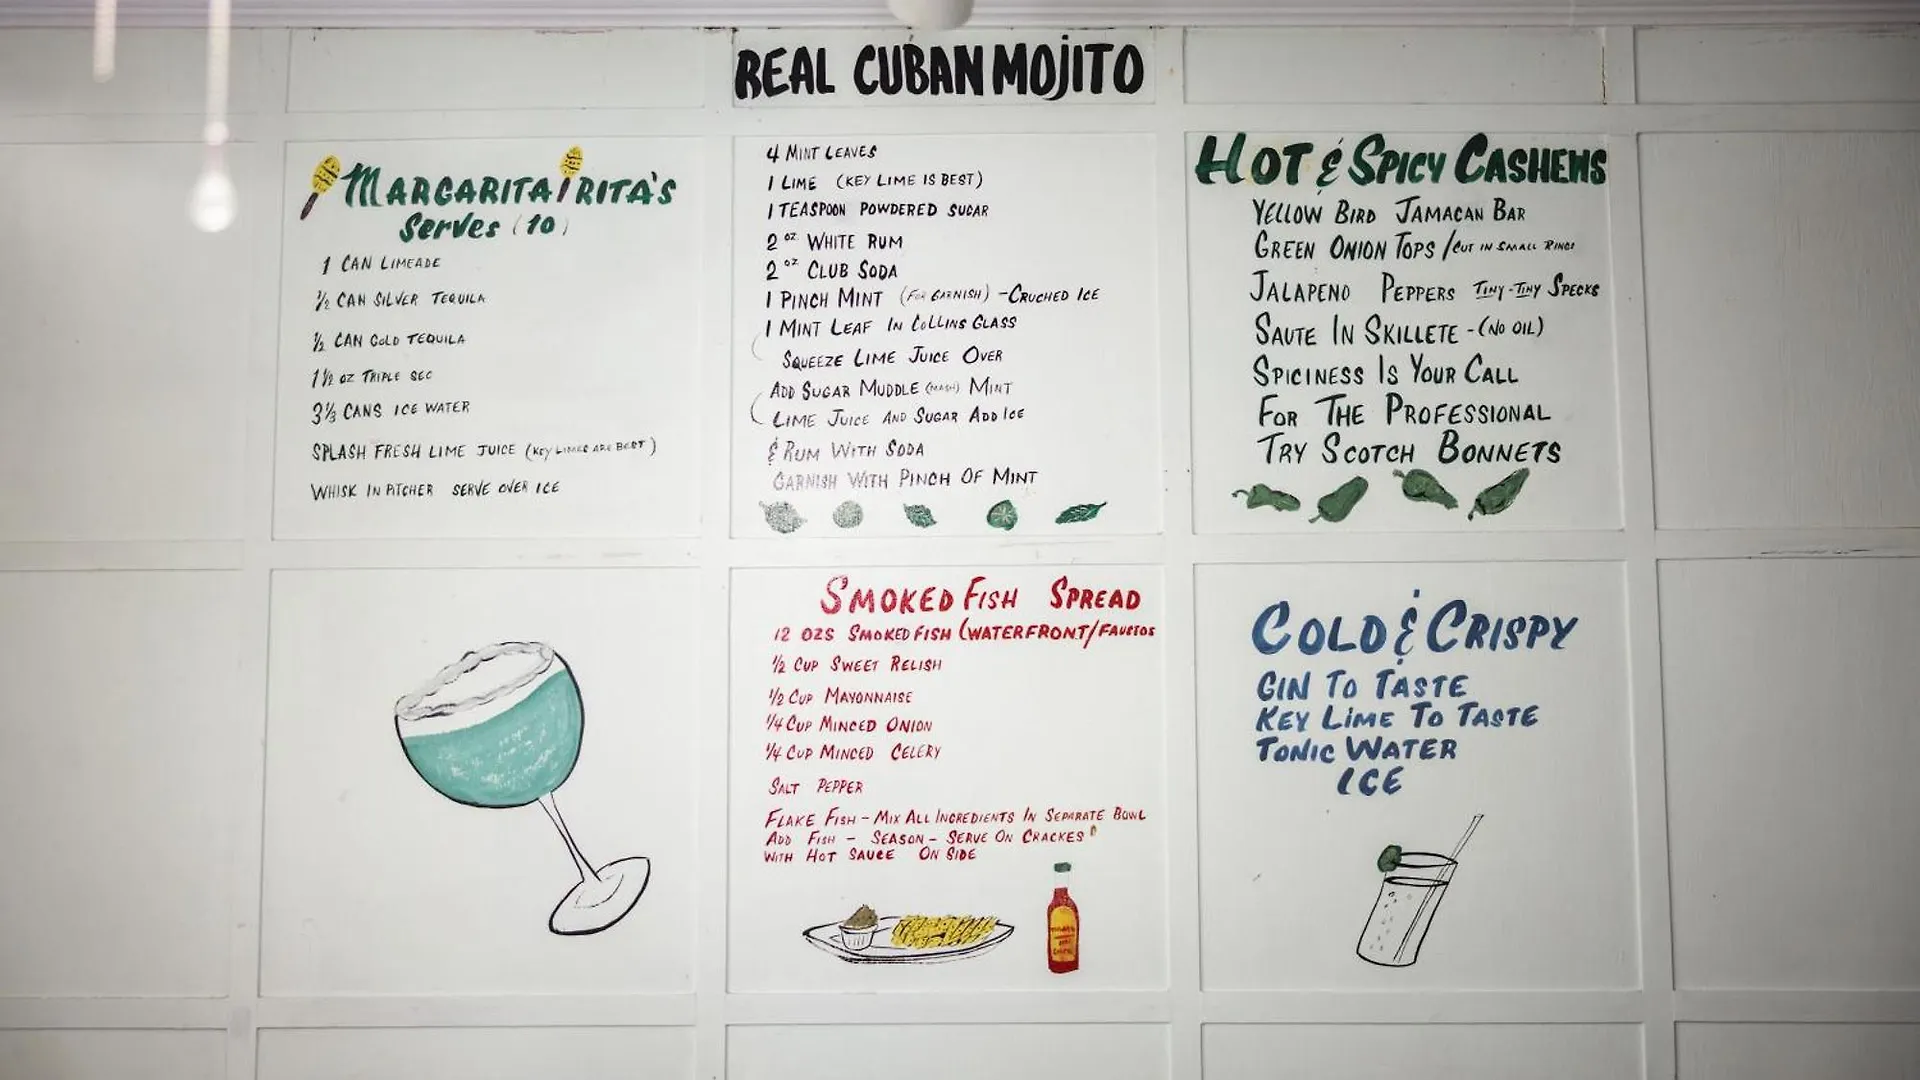 REAL CUBAN MOJITO
MARGARITA RITA'S
Serves (10)
1 CAN LIMEADE
1/2 CAN SILVER TEQUILA
1/2 CAN GOLD TEQUILA
1 1/2 OZ TRIPLE SEC
3 1/3 CANS ICE WATER
SPLASH FRESH LIME JUICE (KEY LIMES ARE BEST)
WHISK IN PITCHER SERVE OVER ICE
4 MINT LEAVES
1 LIME (KEY LIME IS BEST)
1 TEASPOON POWDERED SUGAR
2 OZ WHITE RUM
2 OZ CLUB SODA
1 PINCH MINT (FOR GARNISH) - CRUCHED ICE
1 MINT LEAF IN COLLINS GLASS
SQUEEZE LIME JUICE OVER
ADD SUGAR MUDDLE (MASH) MINT
LIME JUICE AND SUGAR ADD ICE
& RUM WITH SODA
GARNISH WITH PINCH OF MINT
HOT & SPICY CASHEWS
YELLOW BIRD JAMACAN BAR
GREEN ONION TOPS / CUT IN SMALL RINGS
JALAPENO PEPPERS TINY-TINY SPECKS
SAUTE IN SKILLETE - (NO OIL)
SPICINESS IS YOUR CALL
FOR THE PROFESSIONAL
TRY SCOTCH BONNETS
SMOKED FISH SPREAD
12 OZS SMOKED FISH (WATERFRONT/FAUSTOS
1/2 CUP SWEET RELISH
1/2 CUP MAYONNAISE
1/4 CUP MINCED ONION
1/4 CUP MINCED CELERY
SALT PEPPER
FLAKE FISH - MIX ALL INGREDIENTS IN SEPARATE BOWL
ADD FISH - SEASON - SERVE ON CRACKES
WITH HOT SAUCE ON SIDE
COLD & CRISPY
GIN TO TASTE
KEY LIME TO TASTE
TONIC WATER
ICE